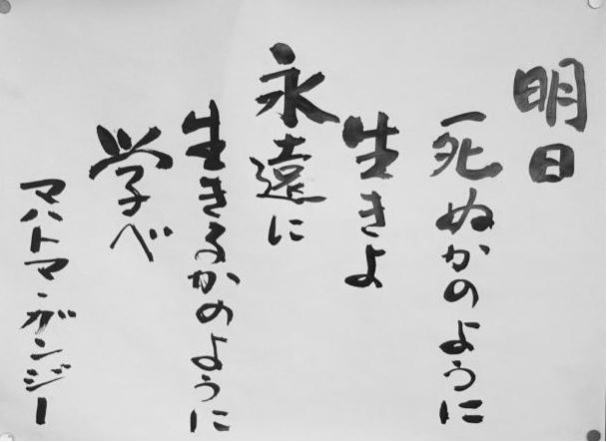 明日
死ぬかのように
生きよ
永遠に
生きるかのように
学べ
マハトマ・ガンジー